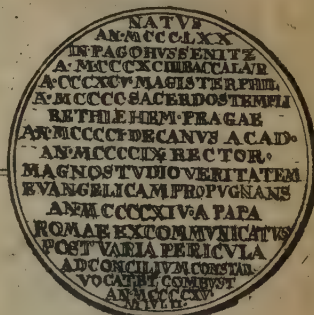 NATVS
AN·MCCCLXX
IN PAGO HVSSENITZ
A·MCCCXCIII BACCALAVR
A·CCCXCV·MAGISTER PHIL
A·MCCCC SACERDOS TEMPLI
BETHLEHEM·PRAGAE
AN·MCCCCI·DECANVS ACAD·
AN·MCCCCIX RECTOR·
MAGNO STVDIO VERITATEM
EVANGELICAM PROPVGNANS
AN·MCCCCXIV·A PAPA
ROMAE EXCOMMVNICATVS
POST VARIA PERICVLA
AD CONCILIVM CONSTAN·
VOCAT·ET COMBVST
AN·MCCCCXV·